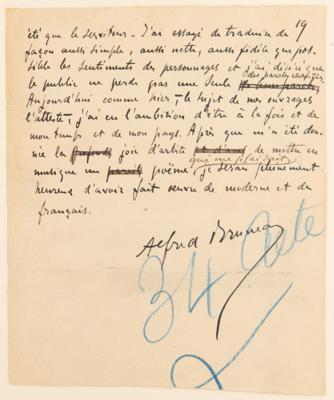 été que le serviteur. J'ai essayé de traduire de 19
façon aussi simple, aussi nette, aussi fidèle que pos-
sible les sentiments des personnages et j'ai désiré que
le public ne perde pas une seule
des paroles chantées.
Aujourd'hui comme hier, le sujet de mes ouvrages
l'atteste, j'ai eu l'ambition d'être à la fois et de
mon temps et de mon pays. Après que m'a été don-
née la profonde joie d'artiste de mettre en
musique un pareil poème, je serais pleinement
qui me plaisait
heureux d'avoir fait œuvre de moderne et de
français.
Alfred Bruneau
34